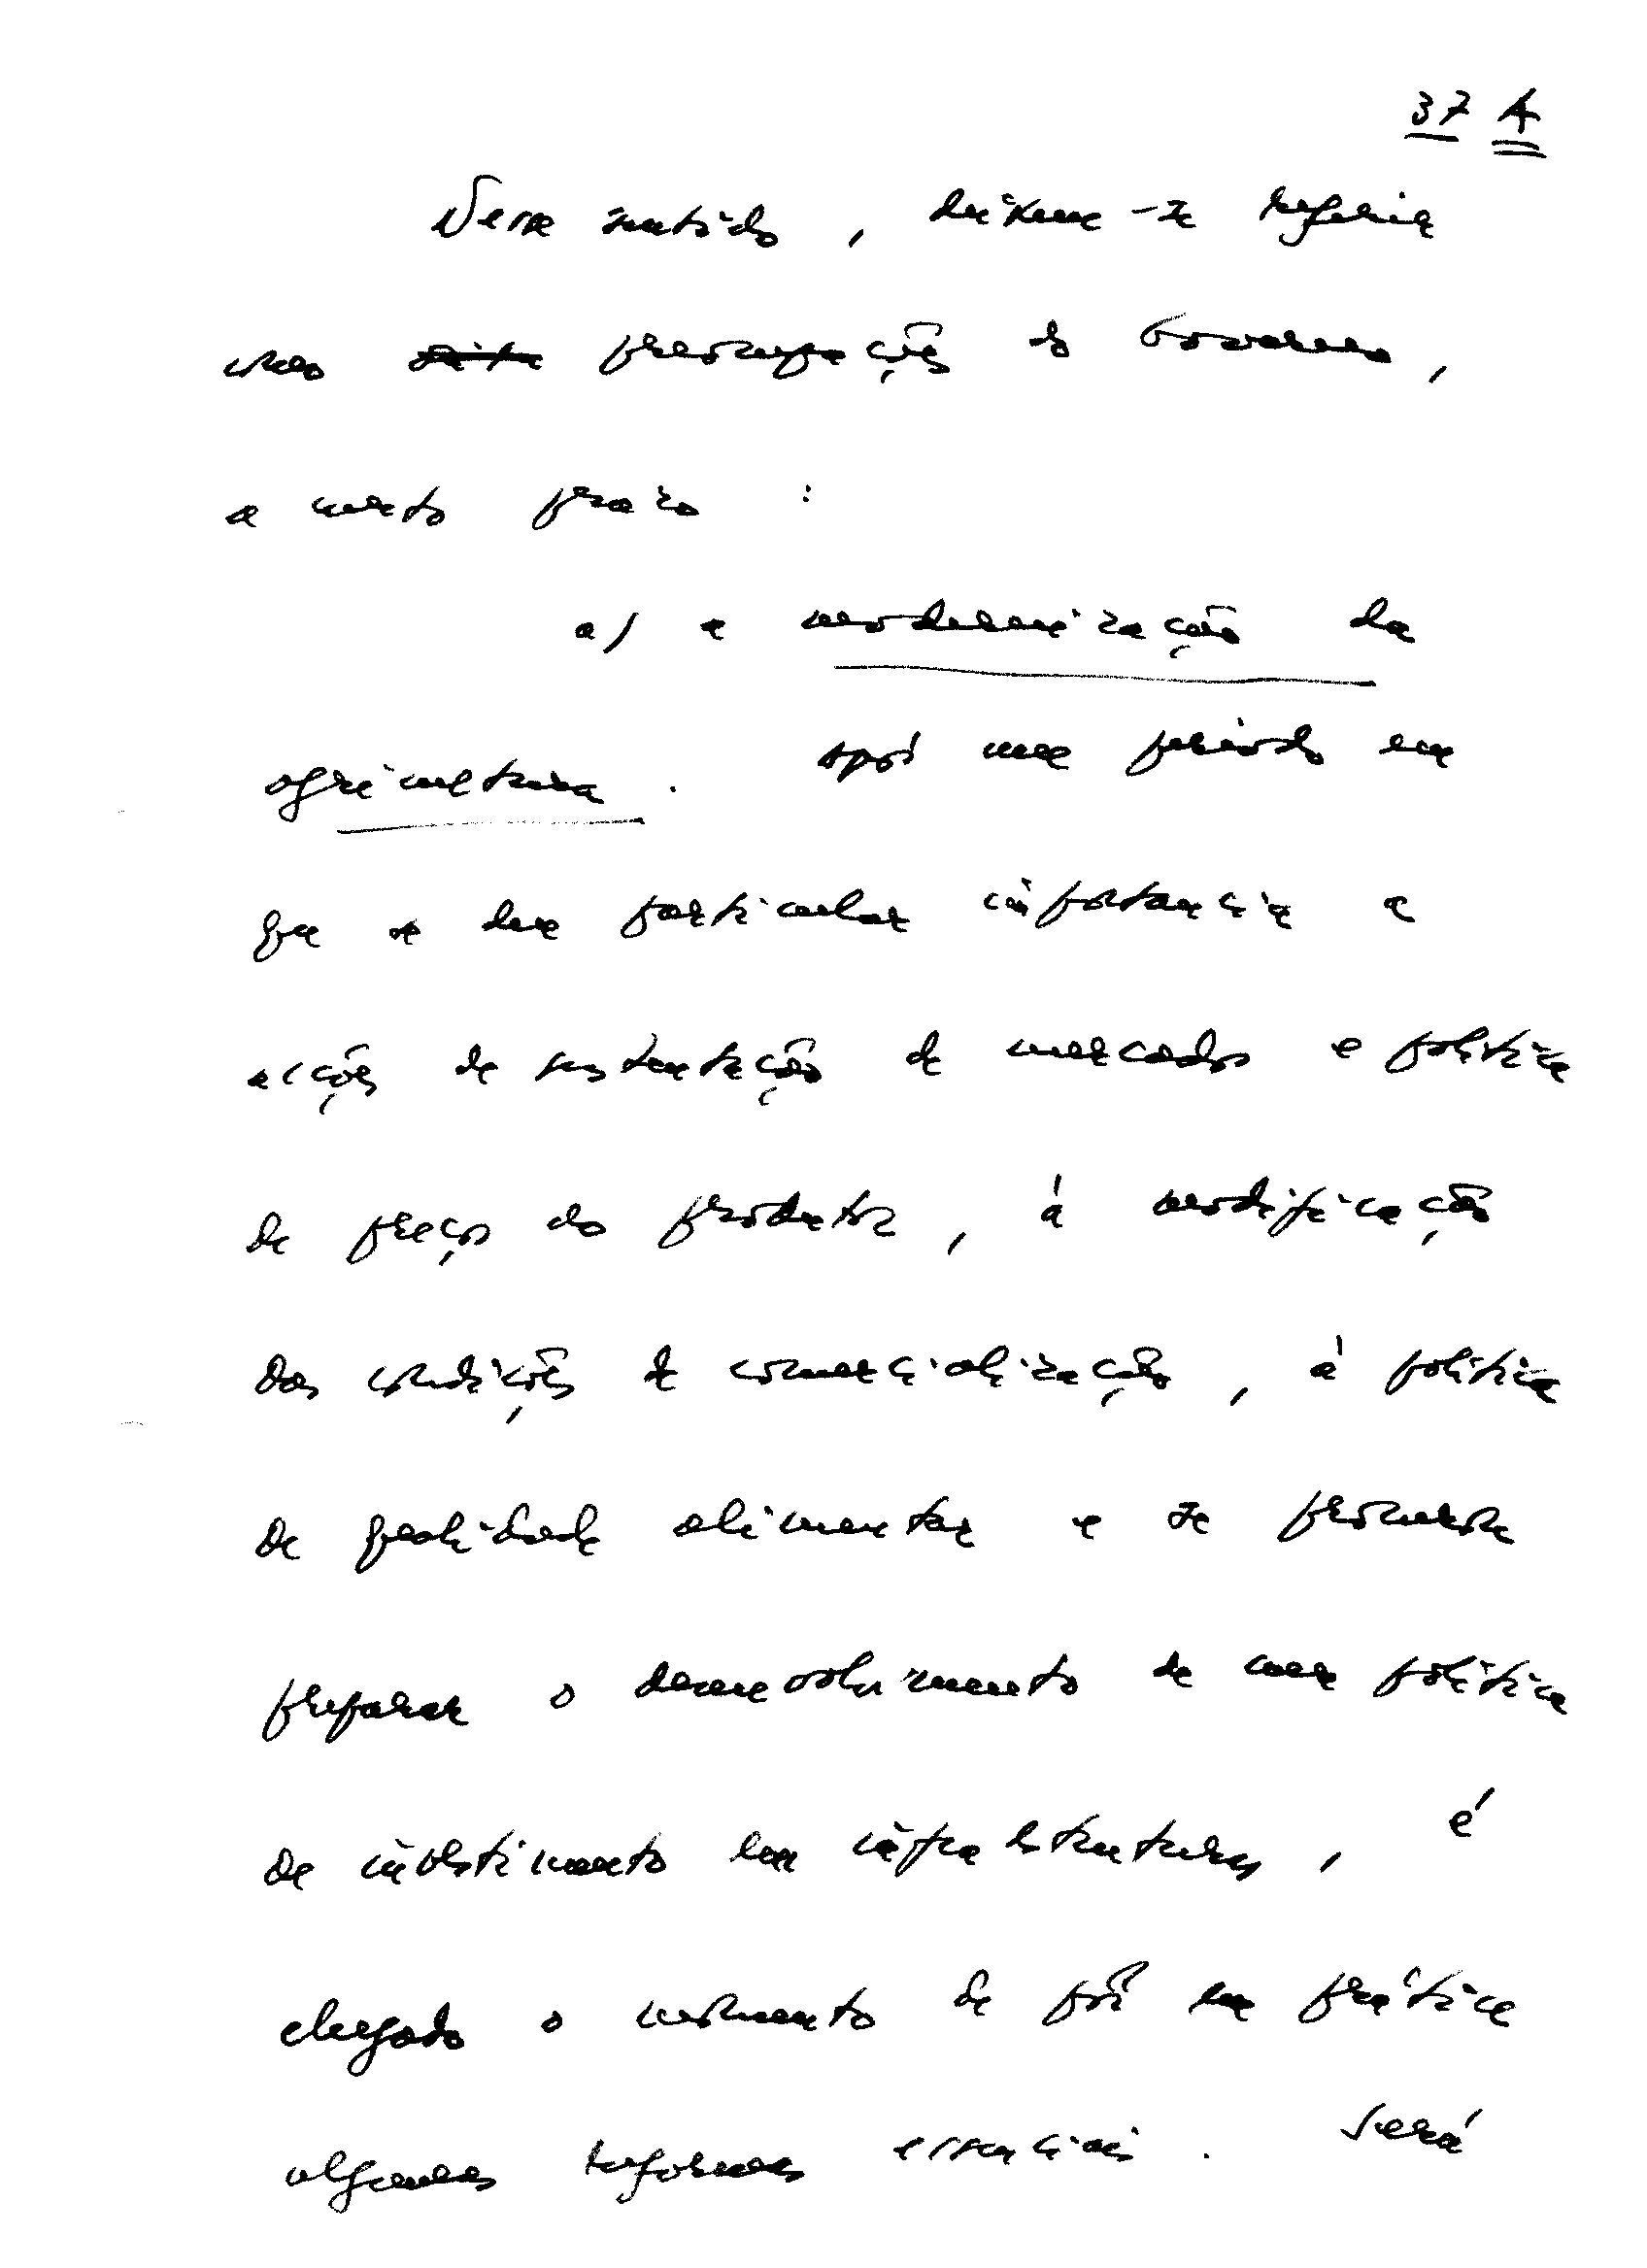 37 A
Nesse sentido, deixem-se referir
como preocupações do Governo,
a curto prazo :
a) a modernização da
agricultura. Após um período em
que se deu particular importância a
acções de sustentação de mercados e política
de preços dos produtos, à modificação
das condições de comercialização, à política
de qualidade alimentar e se procurou
preparar o desenvolvimento de uma política
de investimento em infraestruturas, é
chegado o momento de pôr em prática
algumas reformas essenciais. Será